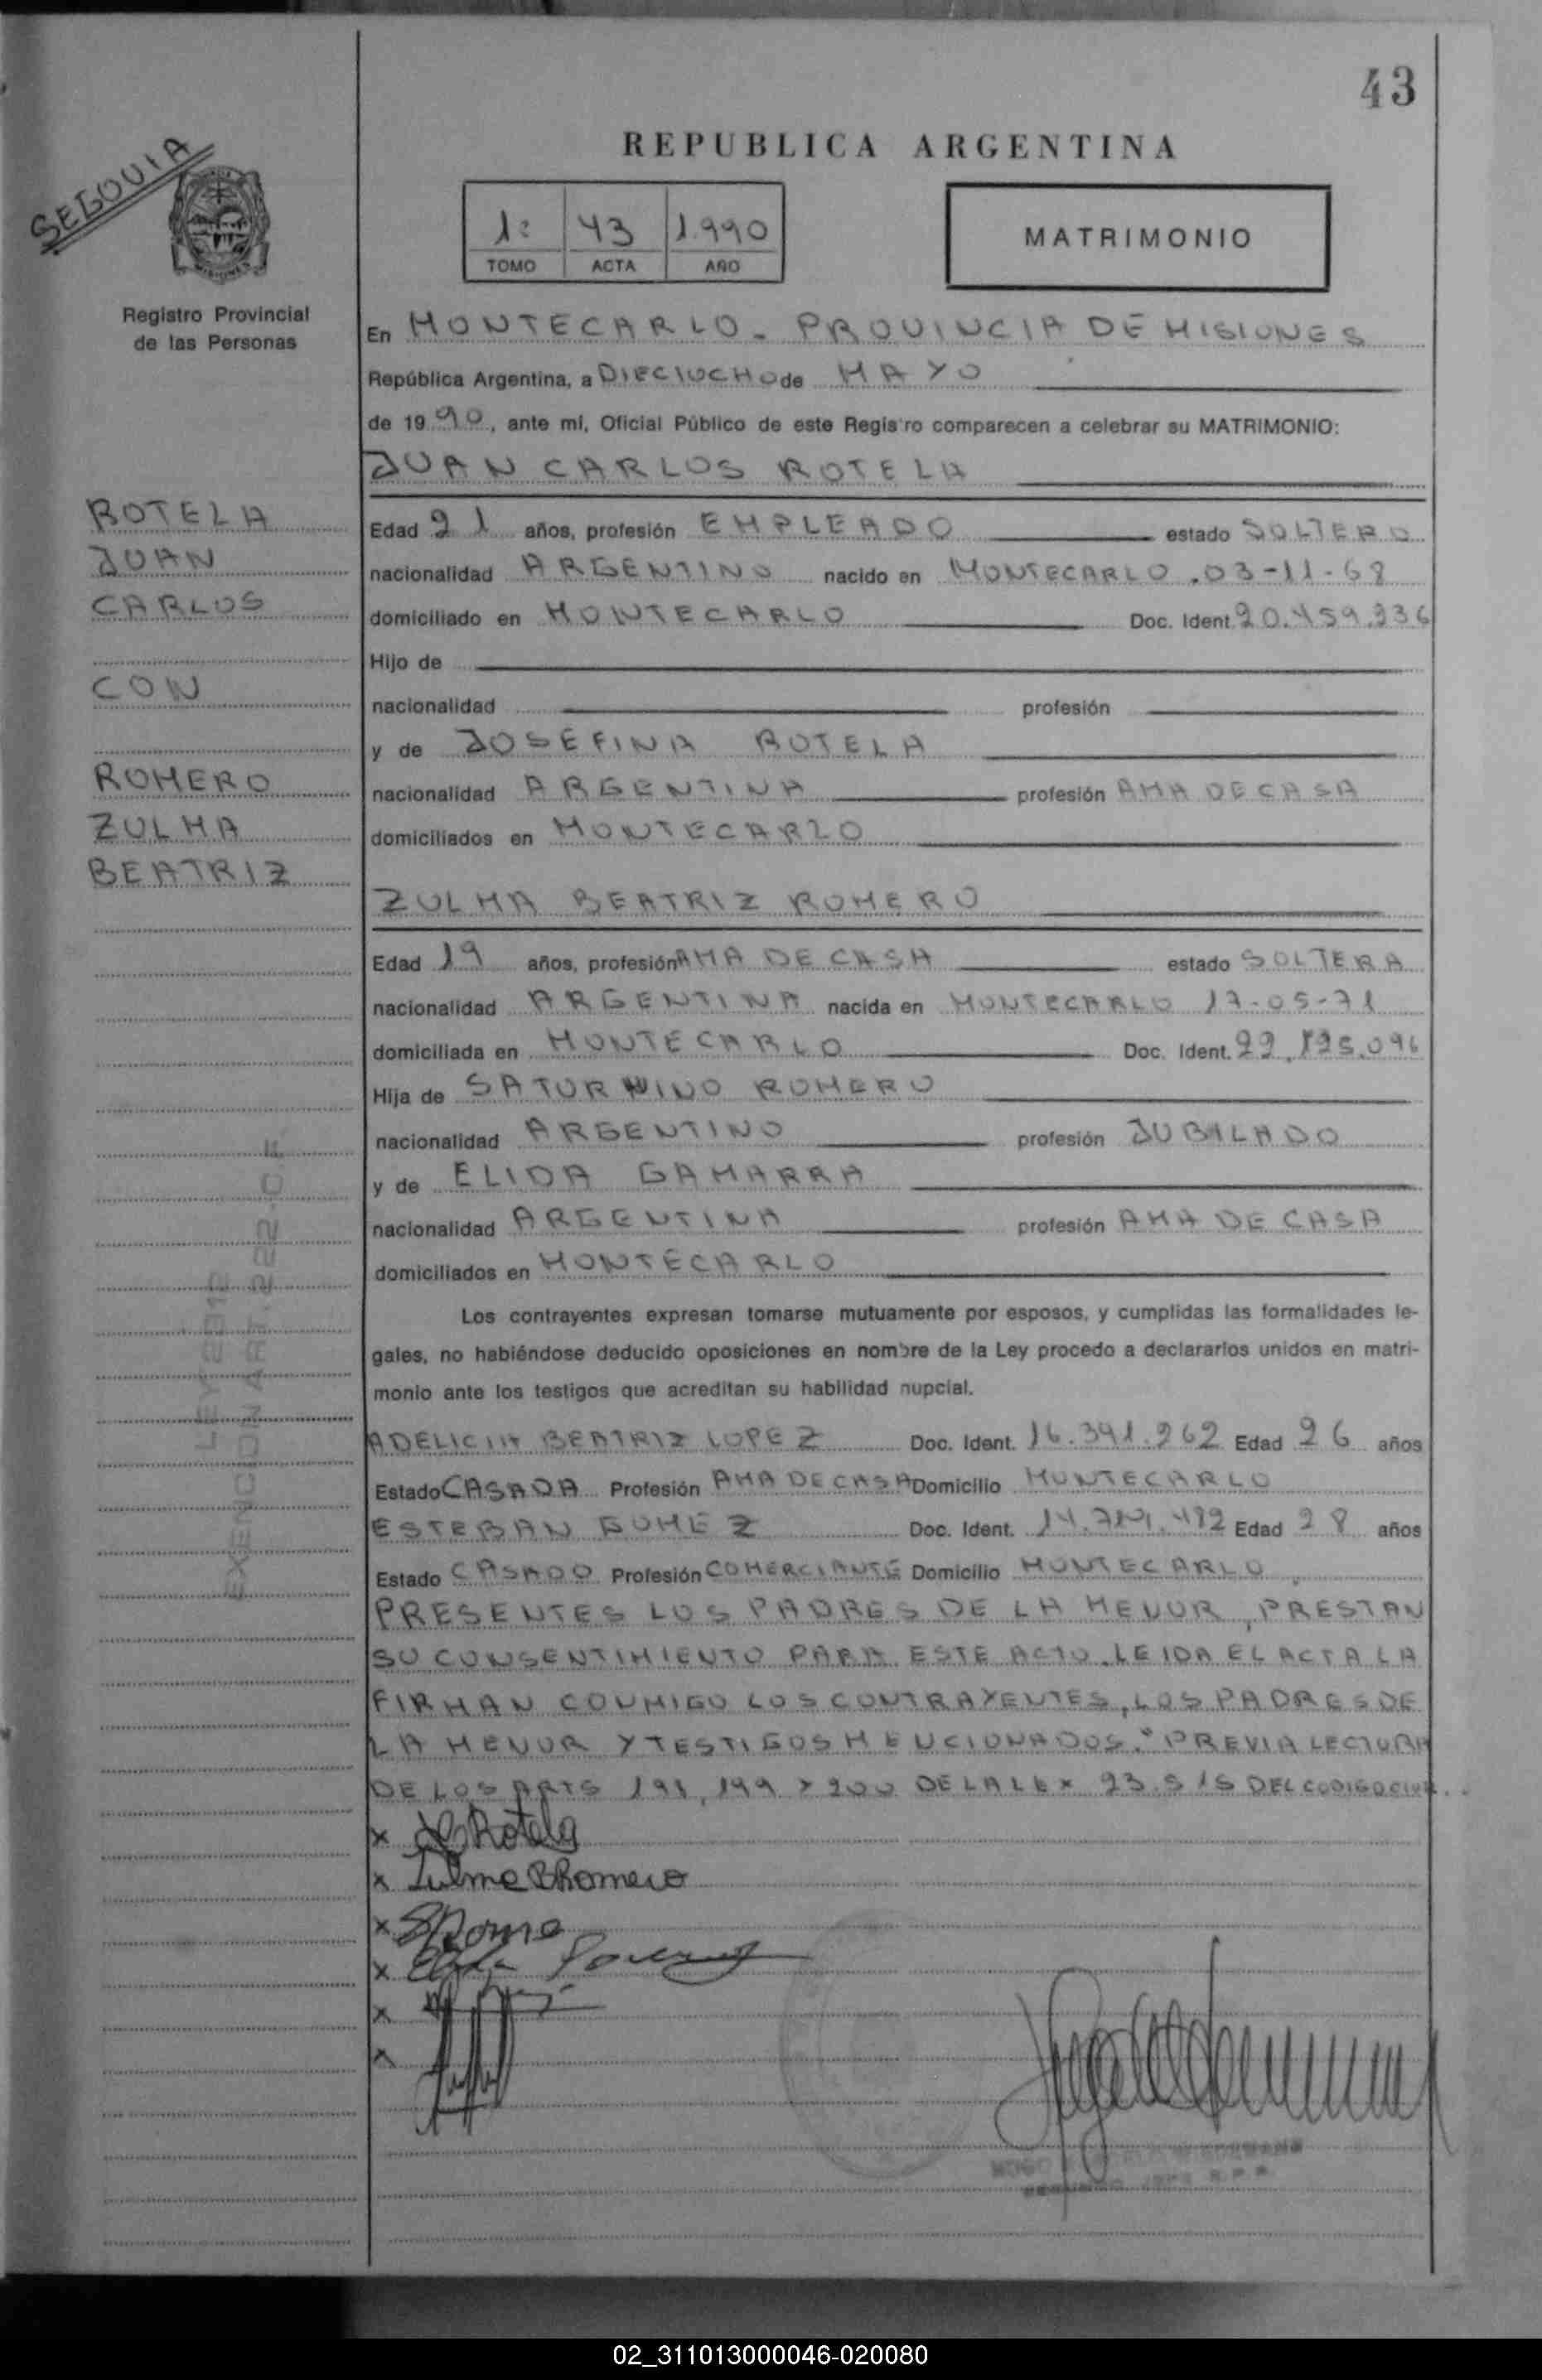 43
SEGOVIA
REPUBLICA ARGENTINA
1º 43 1.990
TOMO ACTA AÑO
MATRIMONIO
Registro Provincial
de las Personas
En MONTECARLO - PROVINCIA DE MISIONES
República Argentina, a DIECIOCHO de MAYO
de 1990, ante mi, Oficial Público de este Registro comparecen a celebrar su MATRIMONIO:
JUAN CARLOS ROTELA
ROTELA
JUAN
CARLOS
CON
ROMERO
ZULMA
BEATRIZ
Edad 21 años, profesión EMPLEADO estado SOLTERO
nacionalidad ARGENTINO nacido en MONTECARLO .03-11-68
domiciliado en MONTECARLO Doc. Ident. 20.459.236
Hijo de
nacionalidad profesión
y de JOSEFINA ROTELA
nacionalidad ARGENTINA profesión AMA DE CASA
domiciliados en MONTECARLO
ZULMA BEATRIZ ROMERO
Edad 19 años, profesión AMA DE CASA estado SOLTERA
nacionalidad ARGENTINA nacida en MONTECARLO 17-05-71
domiciliada en MONTECARLO Doc. Ident.
Hija de SATURNINO ROMERO
nacionalidad ARGENTINO profesión JUBILADO
y de ELIDA GAMARRA
nacionalidad ARGENTINA profesión AMA DE CASA
domiciliados en MONTECARLO
LEY 2312
EXENCION ART. 222 C.F.
Los contrayentes expresan tomarse mutuamente por esposos, y cumplidas las formalidades le-
gales, no habiéndose deducido oposiciones en nombre de la Ley procedo a declararlos unidos en matri-
monio ante los testigos que acreditan su habilidad nupcial.
ADELICIA BEATRIZ LOPEZ Doc. Ident. 16.391.262 Edad 26 años
Estado CASADA Profesión AMA DE CASA Domicilio MONTECARLO
ESTEBAN GOMEZ Doc. Ident. Edad 28 años
Estado CASADO Profesión COMERCIANTE Domicilio MONTECARLO.
PRESENTES LOS PADRES DE LA MENOR, PRESTAN
SU CONSENTIMIENTO PARA ESTE ACTO. LEIDA EL ACTA LA
FIRMAN CONMIGO LOS CONTRAYENTES, LOS PADRES DE
LA MENOR Y TESTIGOS MENCIONADOS. "PREVIA LECTURA
DE LOS ARTS 198, 199 Y 200 DE LA LEY 23.515 DEL CODIGO CIVIL..
x Rotela
x Zulma B Romero
x
x Elida
x
x
02_311013000046-020080